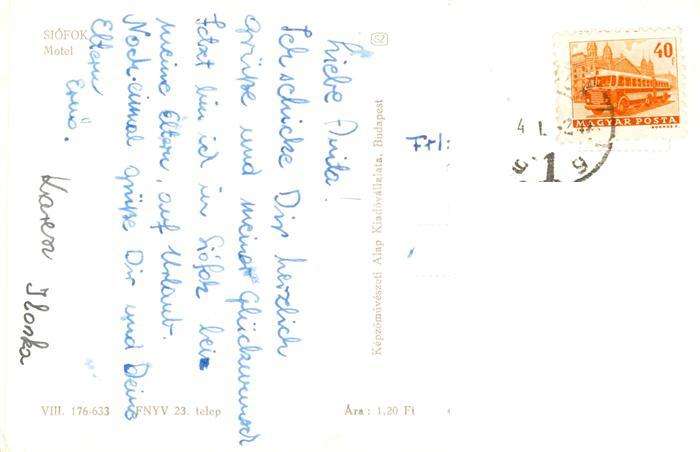 SIÓFOK
Motel
Liebe Anita!
Ich schicke Dir herzlich
Grüße und meiner Glückwunsch
Jetzt bin ich in Siófok bei
meine Eltern, auf Urlaub.
Noch einmal grüße Dir und Deine
Eltern
Ernő.
Karen Ilonka
VIII. 176-633
FNYV 23. telep
Ára : 1.20 Ft
Képzőművészeti Alap Kiadóvállalata, Budapest
SZ
Frl:
40 f
MAGYAR POSTA